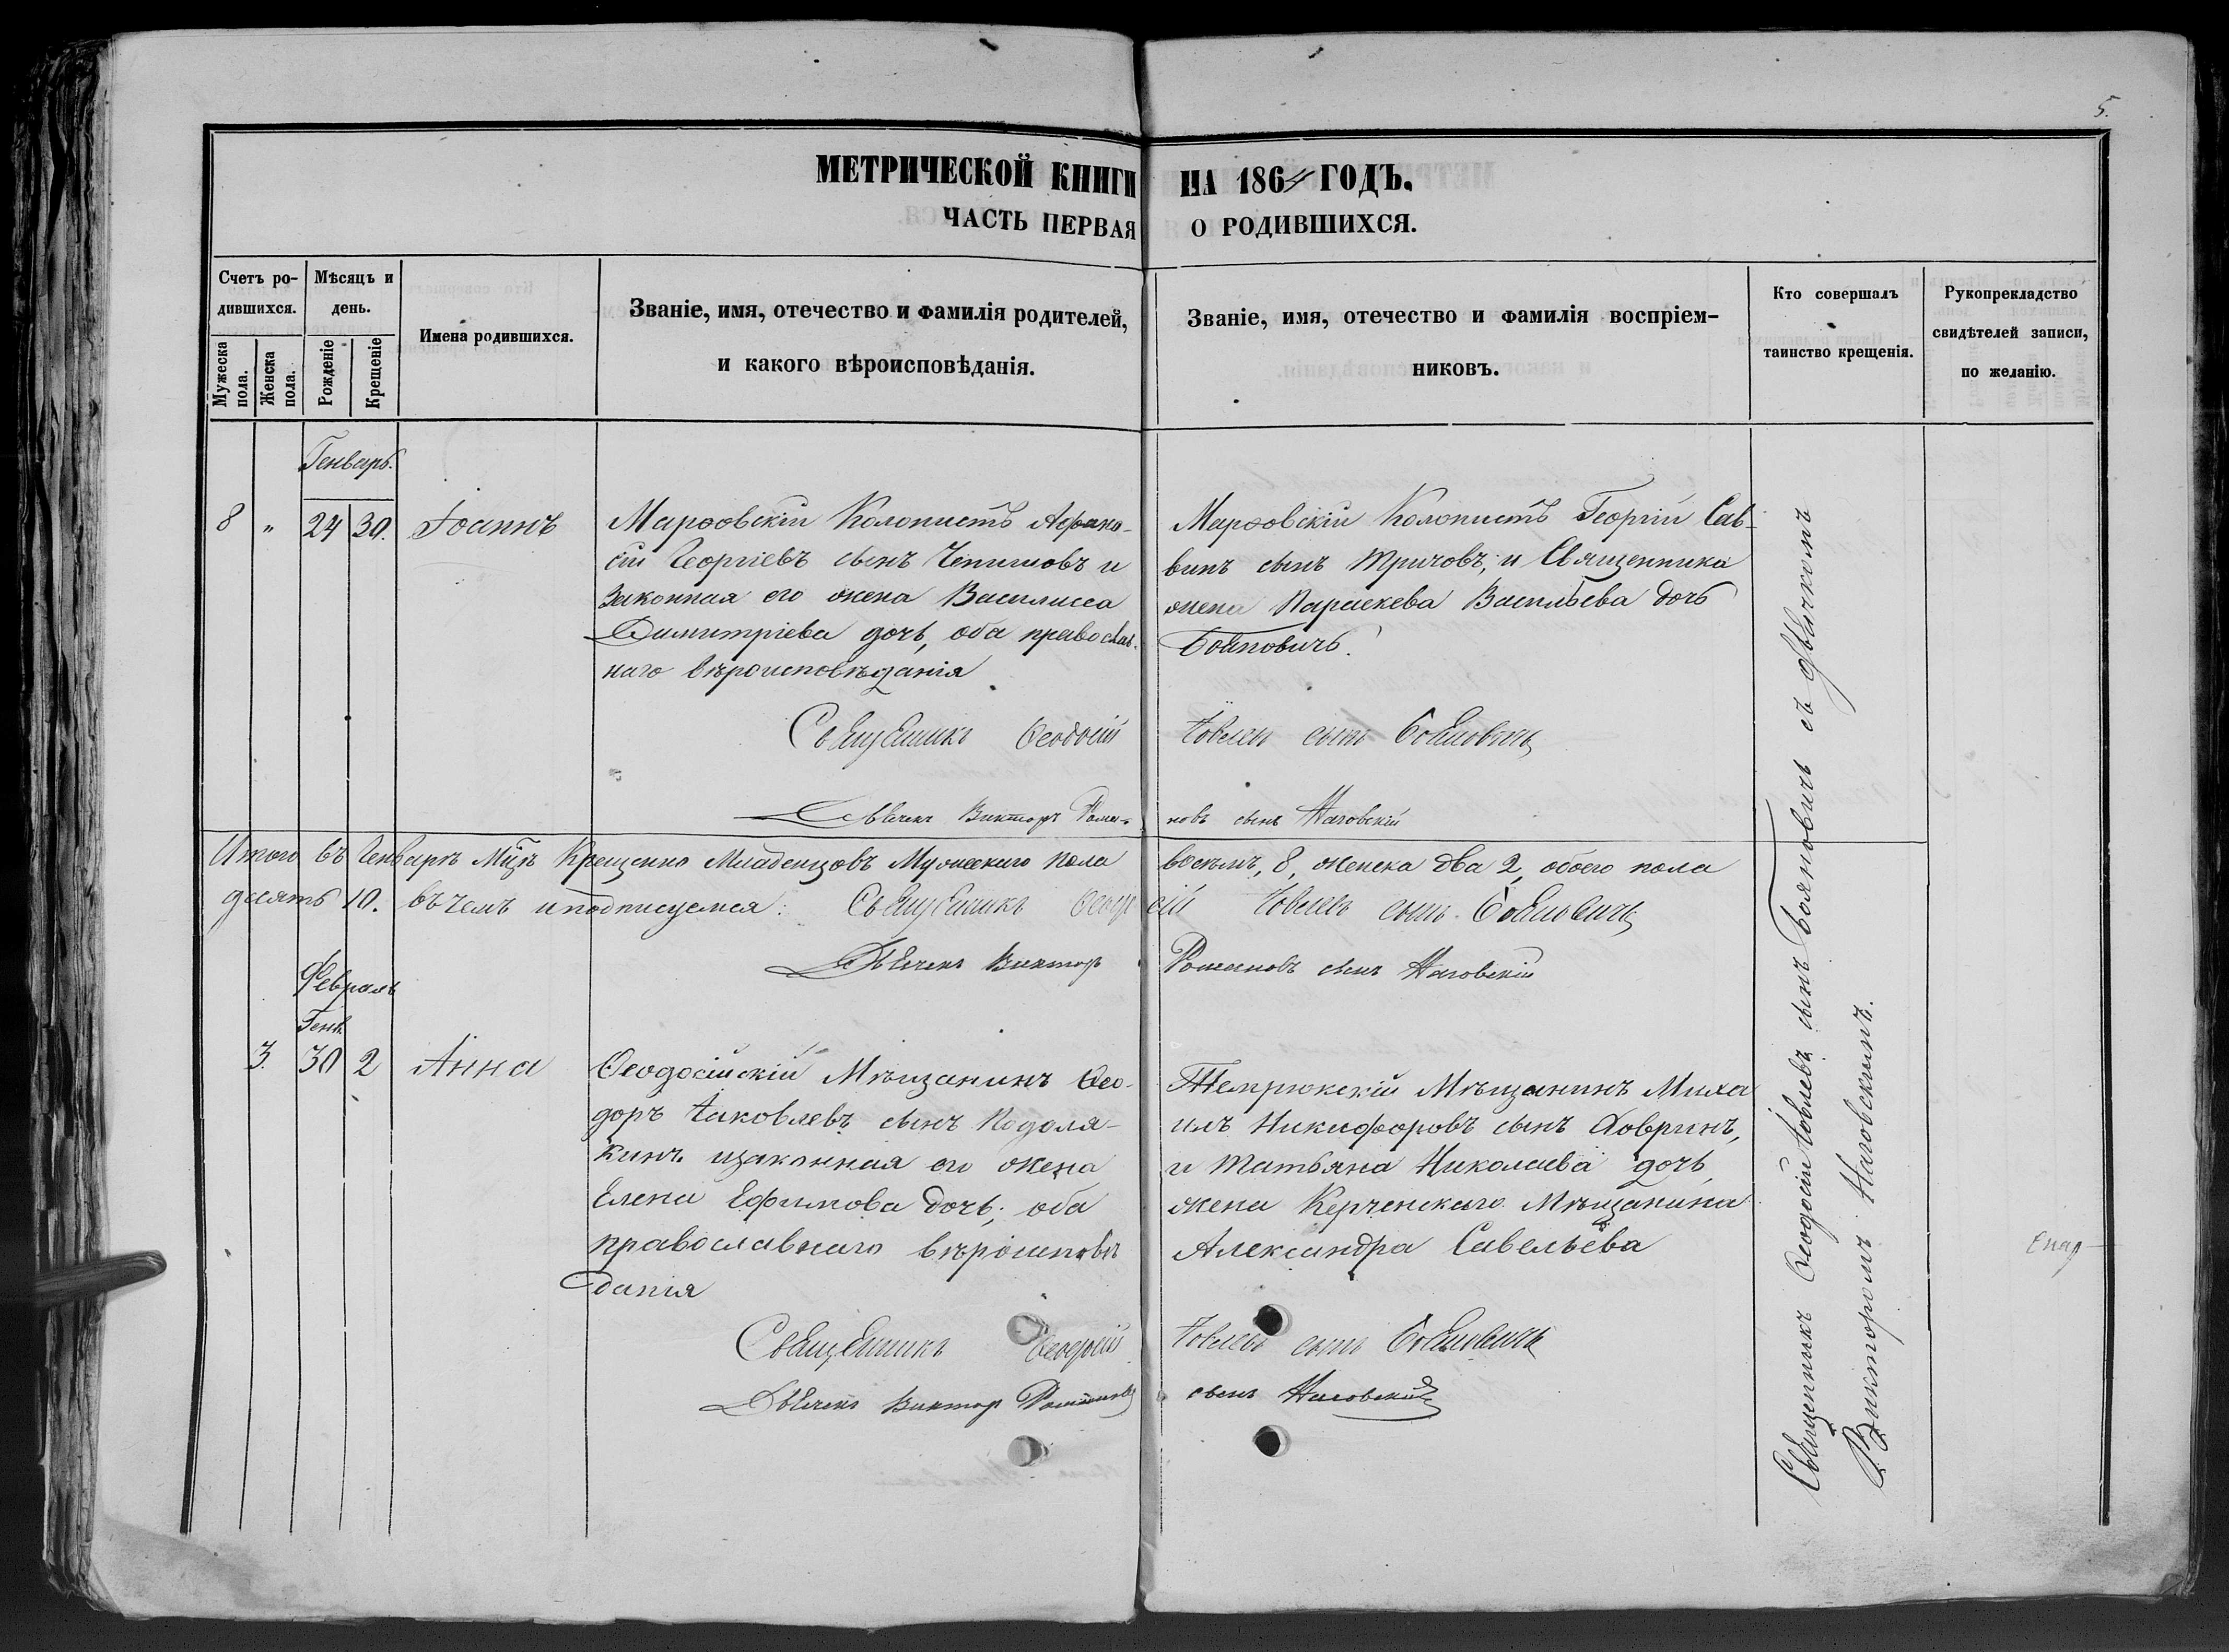 5.
МЕТРИЧЕСКОЙ КНИГИ НА 1864 ГОДЪ.
ЧАСТЬ ПЕРВАЯ О РОДИВШИХСЯ.
Счетъ ро-
дившихся.
Мужеска
пола.
Женска
пола.
Мѣсяцъ и
день.
Рожденіе
Крещеніе
Имена родившихся.
Званіе, имя, отечество и фамилія родителей,
и какого вѣроисповѣданія.
Званіе, имя, отечество и фамилія воспріем-
никовъ.
Кто совершалъ
таинство крещенія.
Рукопрекладство
свидѣтелей записи,
по желанію.
Генварь.
8 " 24 30. Іоаннъ
Марфовскій Колонистъ Афана-
сій Георгіевъ сынъ Чепишовъ и
Законная его жена Василисса
Димитріева дочь, оба православ-
наго вѣроисповѣданія
Марфовскій Колонистъ Георгій Сав-
винъ сынъ Тричовъ, и Священника
жена Параскева Васильева дочь
Бояновичъ.
Священникъ Ѳеодосій Іовлевъ сынъ Бояновичъ
Дьячекъ Викторъ Рома-
новъ сынъ Наговскій
Итого въ Генварѣ Мцѣ Крещено Младенцовъ Мужескаго пола восѣмъ, 8, женска два 2, обоего пола
десять 10. въ чемъ и подписуемся: Священникъ Ѳеодосій Іовлевъ сынъ Бояновичъ
Дьячекъ Викторъ Романовъ сынъ Наговскій
Февраль
Генв.
3. 30 2 Анна
Ѳеодосійскій Мѣщанинъ Ѳео-
доръ Іаковлевъ сынъ Подоля-
кинъ изаконная его жена
Елена Ефимова дочь; оба
православнаго вѣроисповѣ
данія
Темрюкскій Мѣщанинъ Миха
илъ Никифоровъ сынъ Ховринъ,
и Татьяна Николаева дочь,
жена Керченскаго Мѣщанина
Александра Савельева
Священникъ Ѳеодосій Іовлевъ сынъ Бояновичъ
Дьячекъ Викторъ Романовъ сынъ Наговскій
Священникъ Ѳеодосій Іовлевъ сынъ Бояновичъ съ дьячкомъ
Викторомъ Наговскимъ.